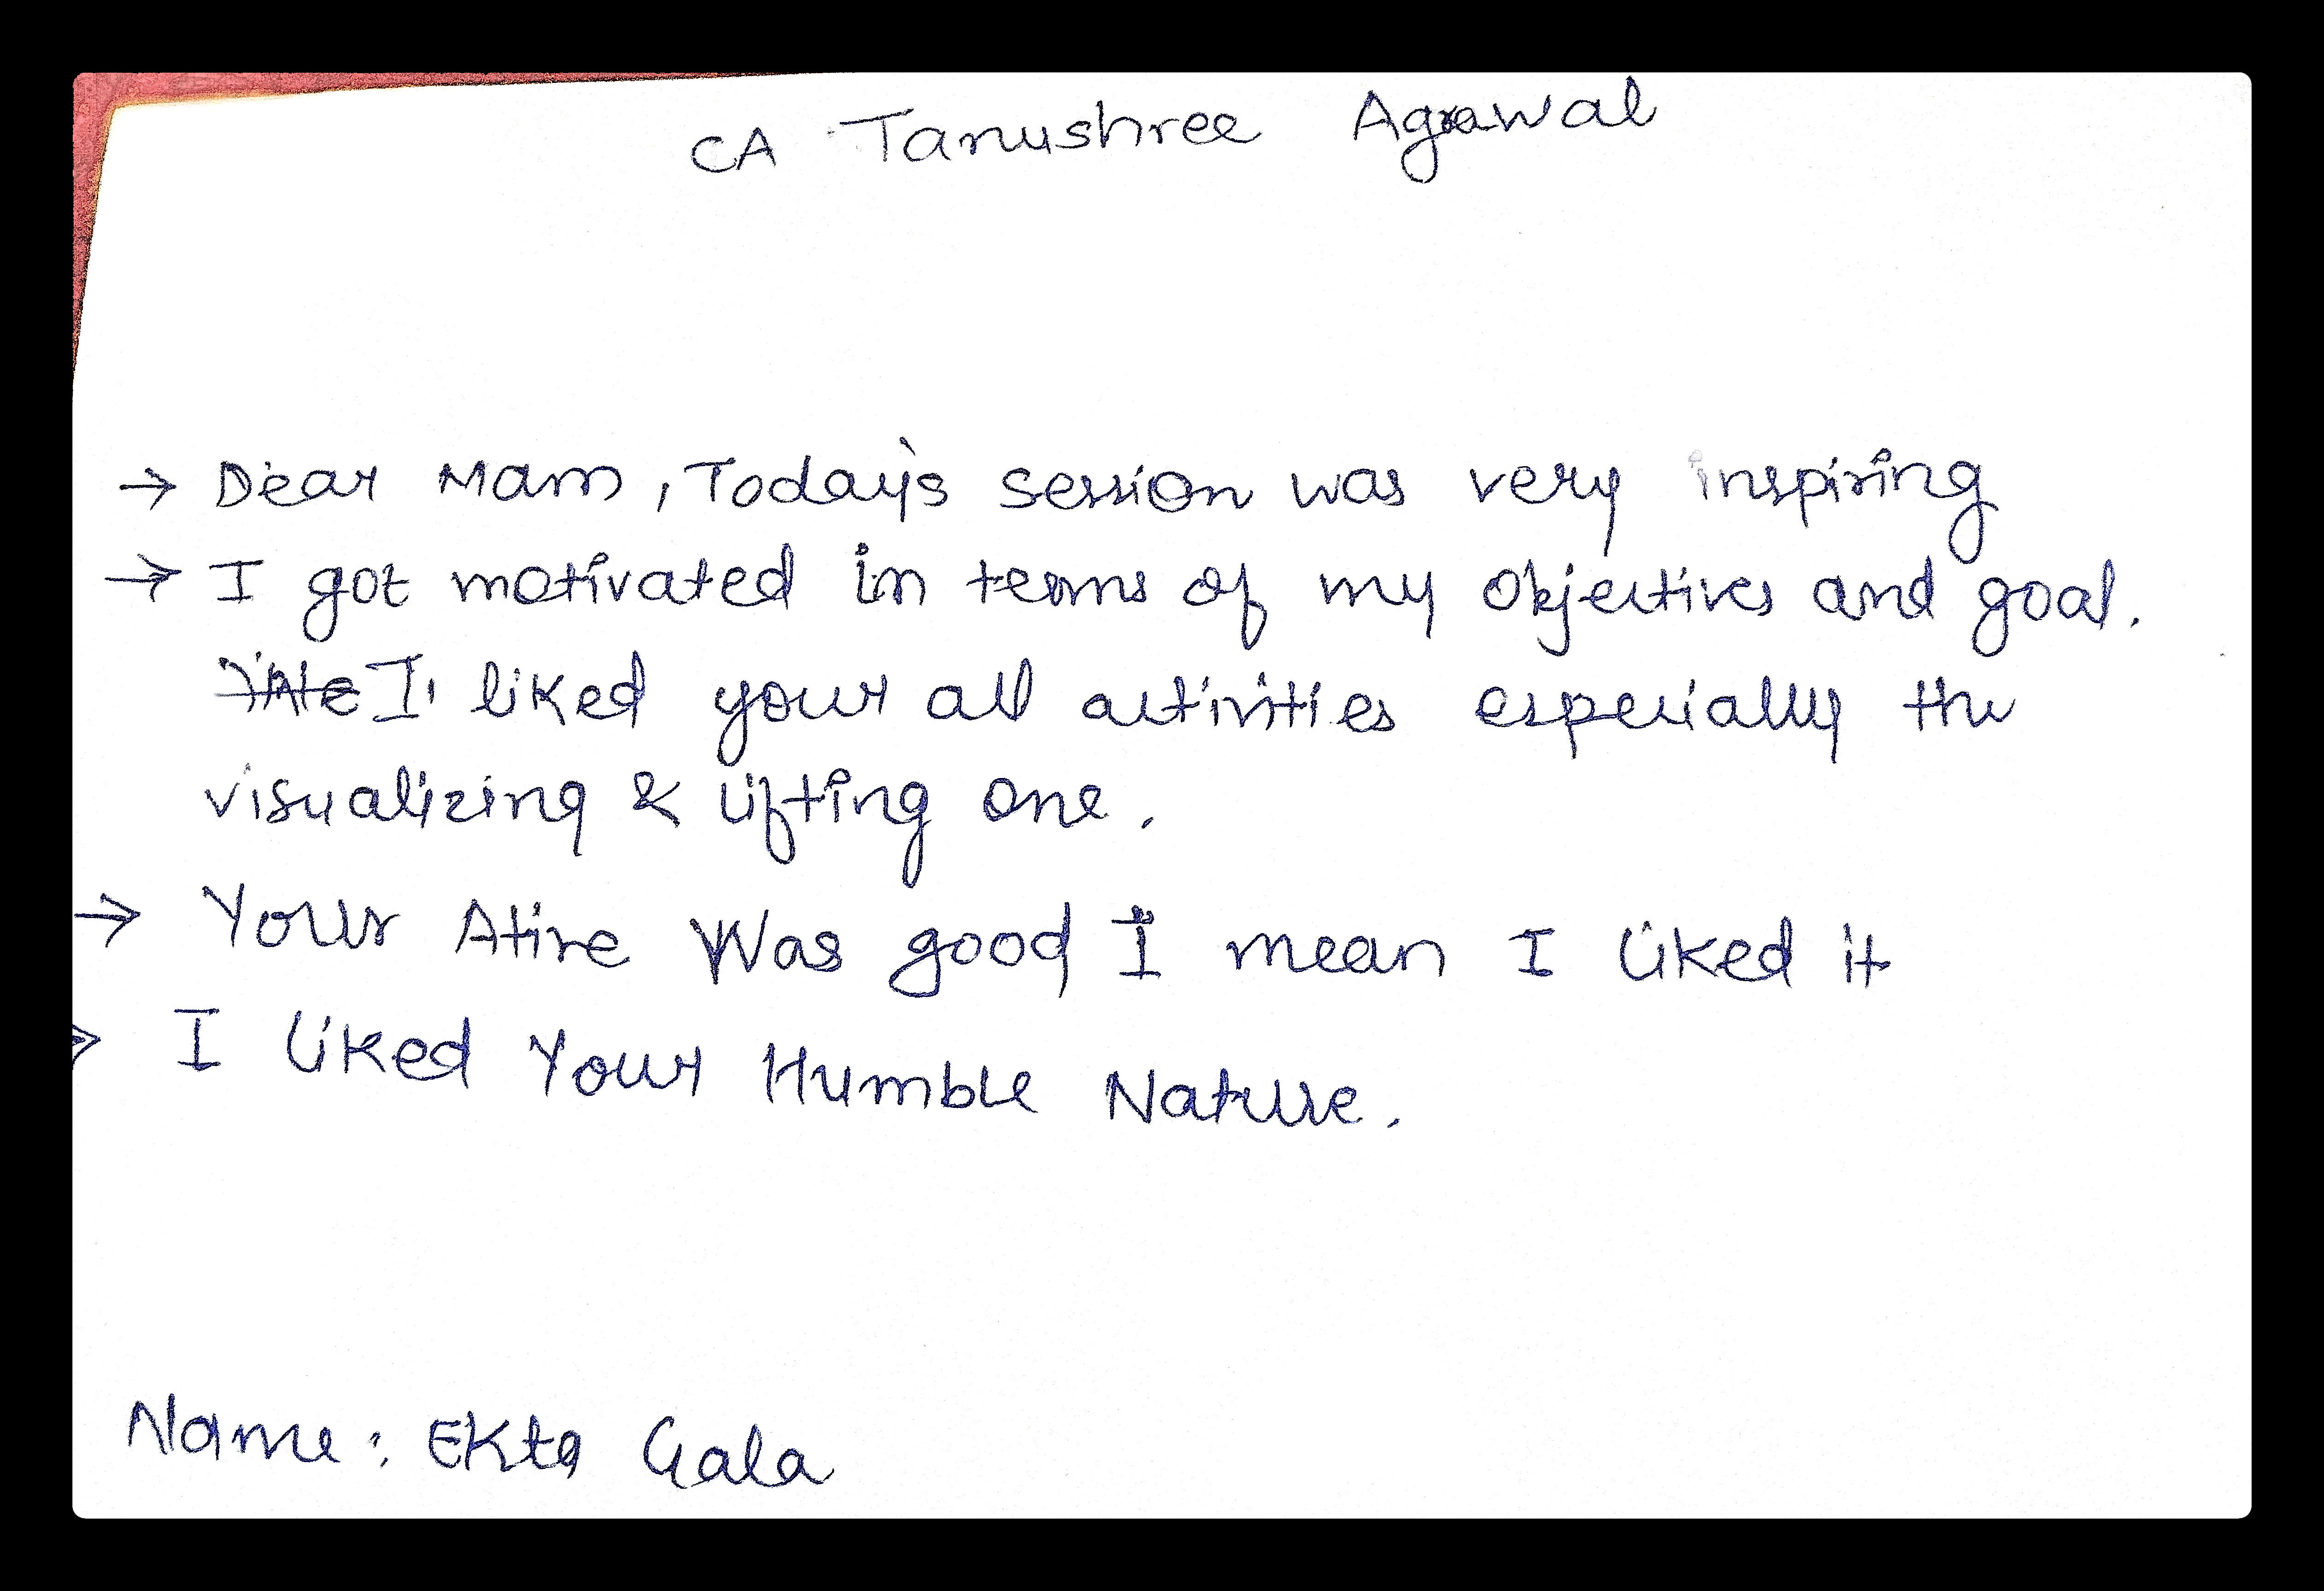 CA Tanushree Agrawal
→ Dear Mam, Today's session was very inspiring
→ I got motivated in terms of my objectives and goal.
I liked your all activities especially the
visualizing & lifting one.
→ Your Atire Was good I mean I liked it
→ I liked Your Humble Nature.
Name: Ekta Gala